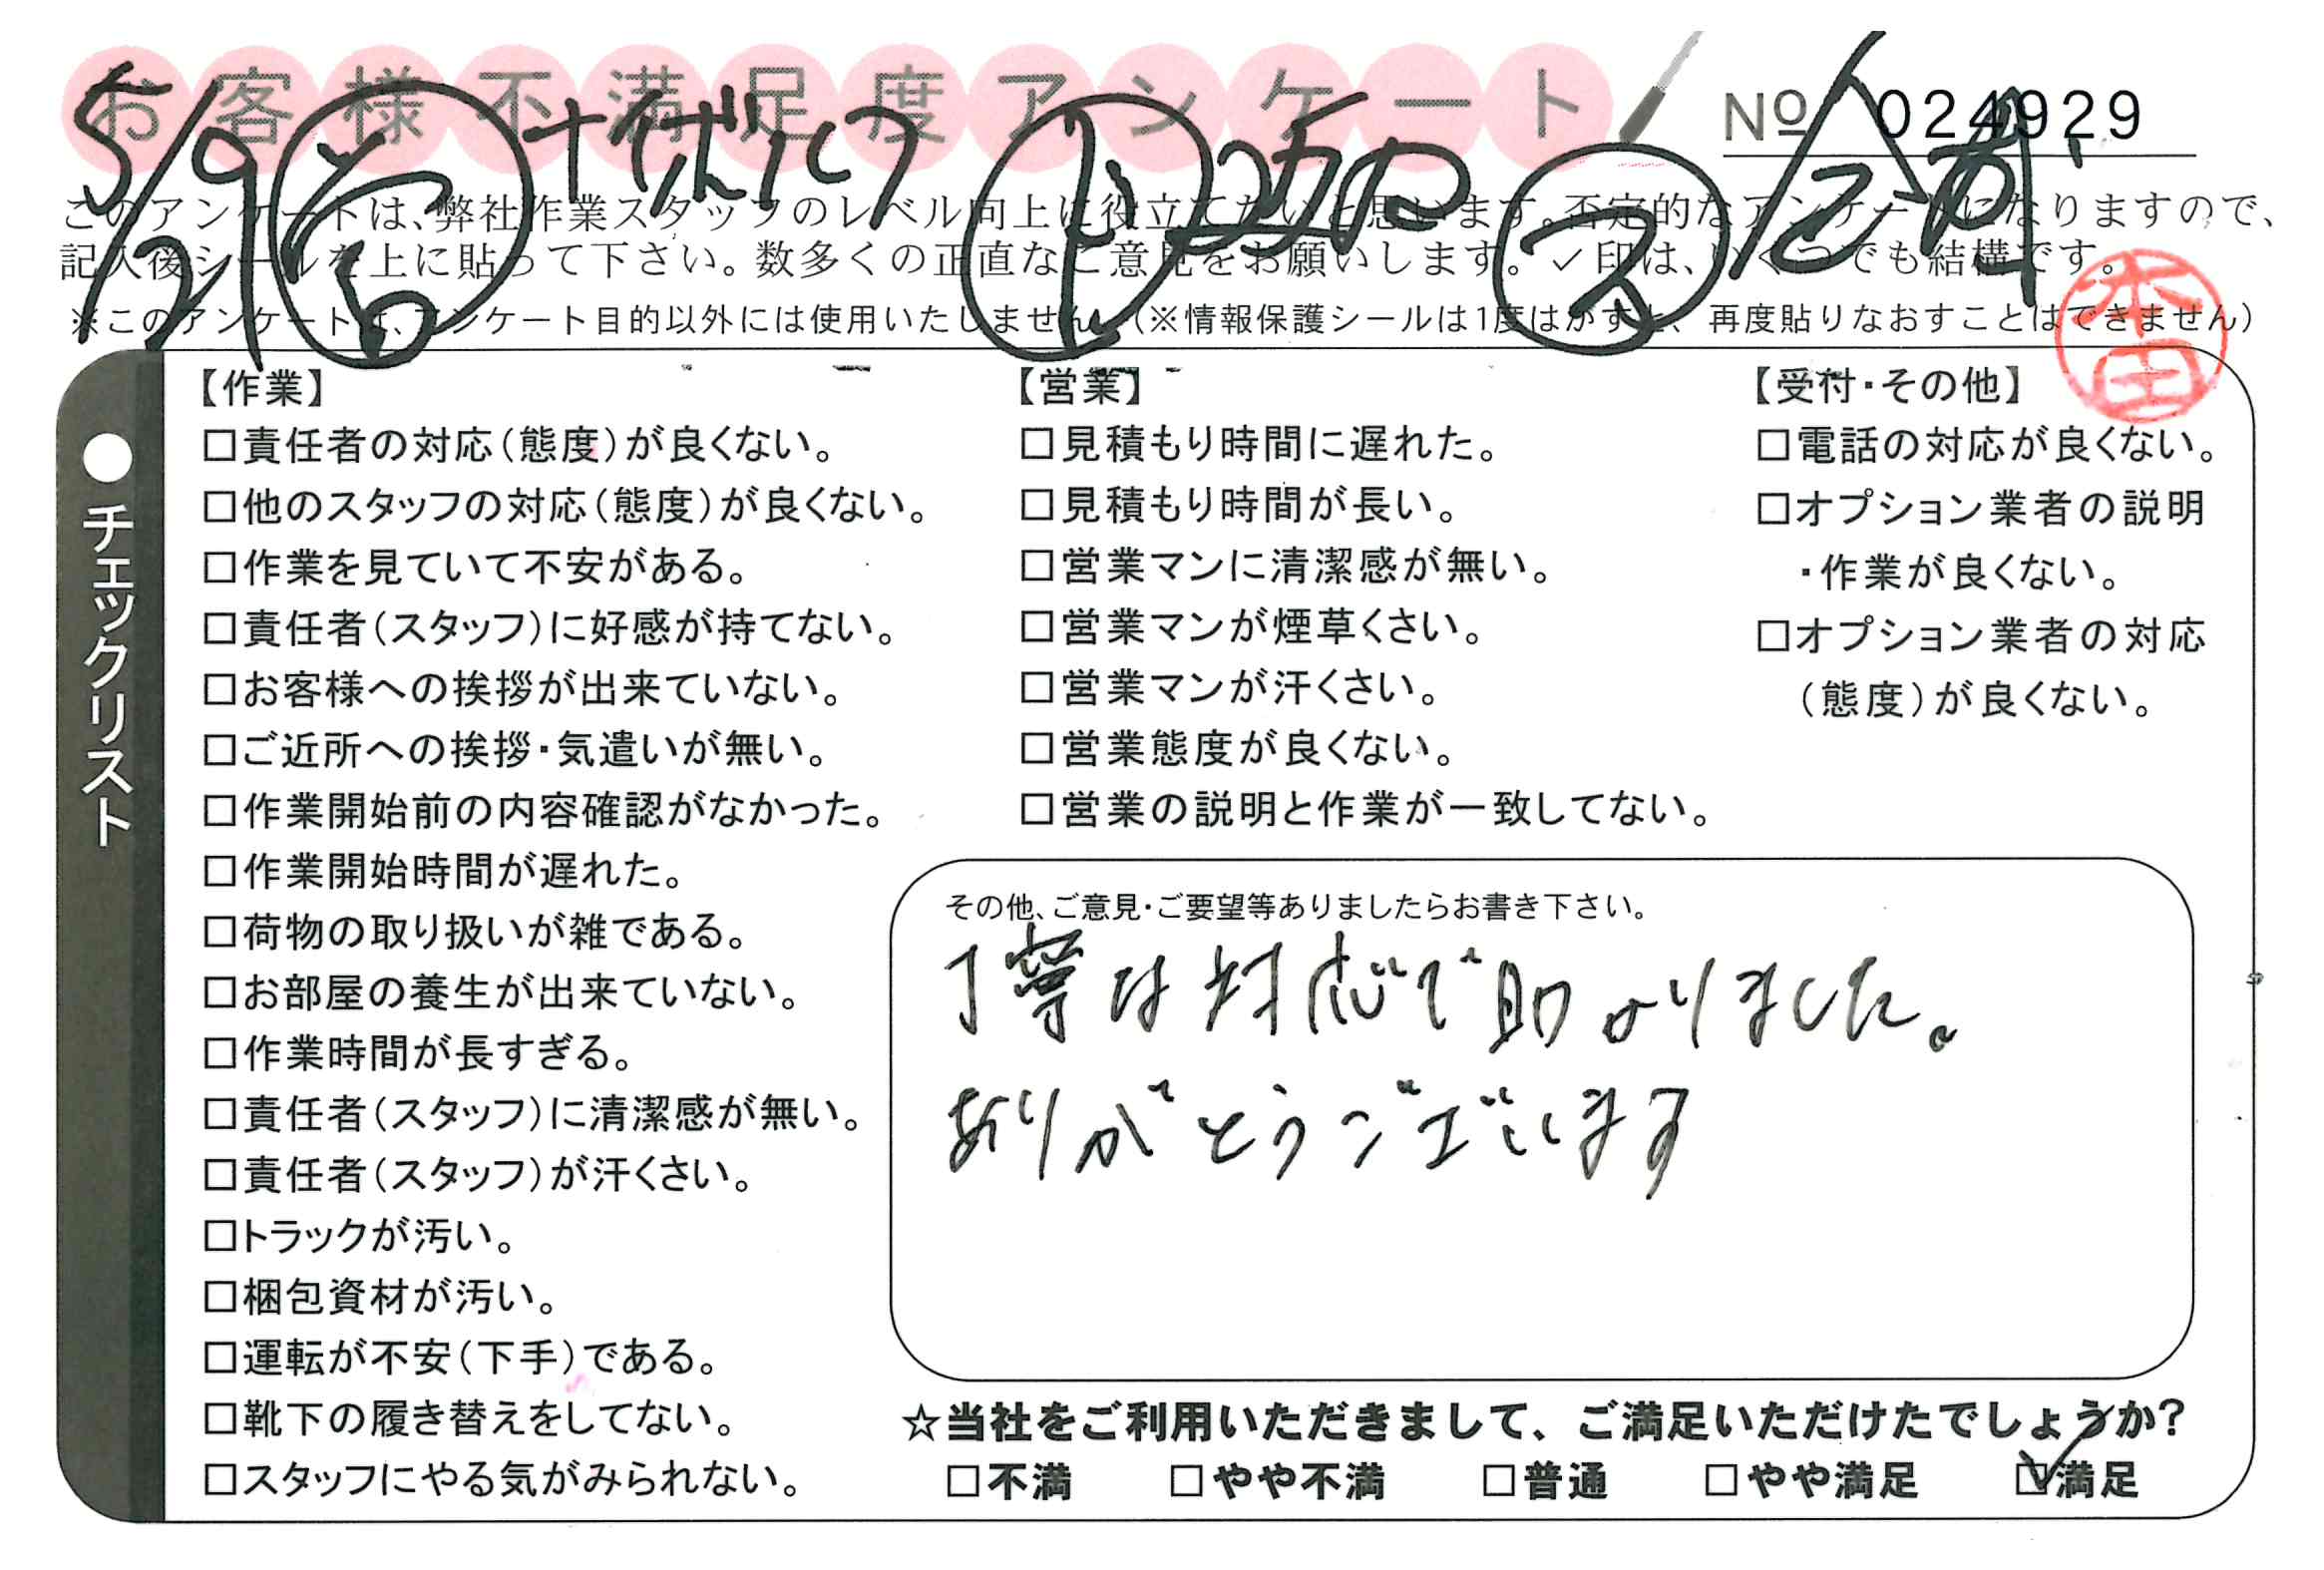 お客様不満足度アンケート
No 024929
5/29
このアンケートは、弊社作業スタッフのレベル向上に役立てたいと思います。否定的なアンケートになりますので、
記入後シールを上に貼って下さい。数多くの正直なご意見をお願いします。✓印は、いくつでも結構です。
※このアンケートは、アンケート目的以外には使用いたしません。(※情報保護シールは1度はがすと、再度貼りなおすことはできません)
本田
●チェックリスト
【作業】
□責任者の対応(態度)が良くない。
□他のスタッフの対応(態度)が良くない。
□作業を見ていて不安がある。
□責任者(スタッフ)に好感が持てない。
□お客様への挨拶が出来ていない。
□ご近所への挨拶・気遣いが無い。
□作業開始前の内容確認がなかった。
□作業開始時間が遅れた。
□荷物の取り扱いが雑である。
□お部屋の養生が出来ていない。
□作業時間が長すぎる。
□責任者(スタッフ)に清潔感が無い。
□責任者(スタッフ)が汗くさい。
□トラックが汚い。
□梱包資材が汚い。
□運転が不安(下手)である。
□靴下の履き替えをしてない。
□スタッフにやる気がみられない。
【営業】
□見積もり時間に遅れた。
□見積もり時間が長い。
□営業マンに清潔感が無い。
□営業マンが煙草くさい。
□営業マンが汗くさい。
□営業態度が良くない。
□営業の説明と作業が一致してない。
【受付・その他】
□電話の対応が良くない。
□オプション業者の説明
・作業が良くない。
□オプション業者の対応
(態度)が良くない。
その他、ご意見・ご要望等ありましたらお書き下さい。
丁寧な対応で助かりました。
ありがとうございます
☆当社をご利用いただきまして、ご満足いただけたでしょうか?
□不満 □やや不満 □普通 □やや満足 ☑満足